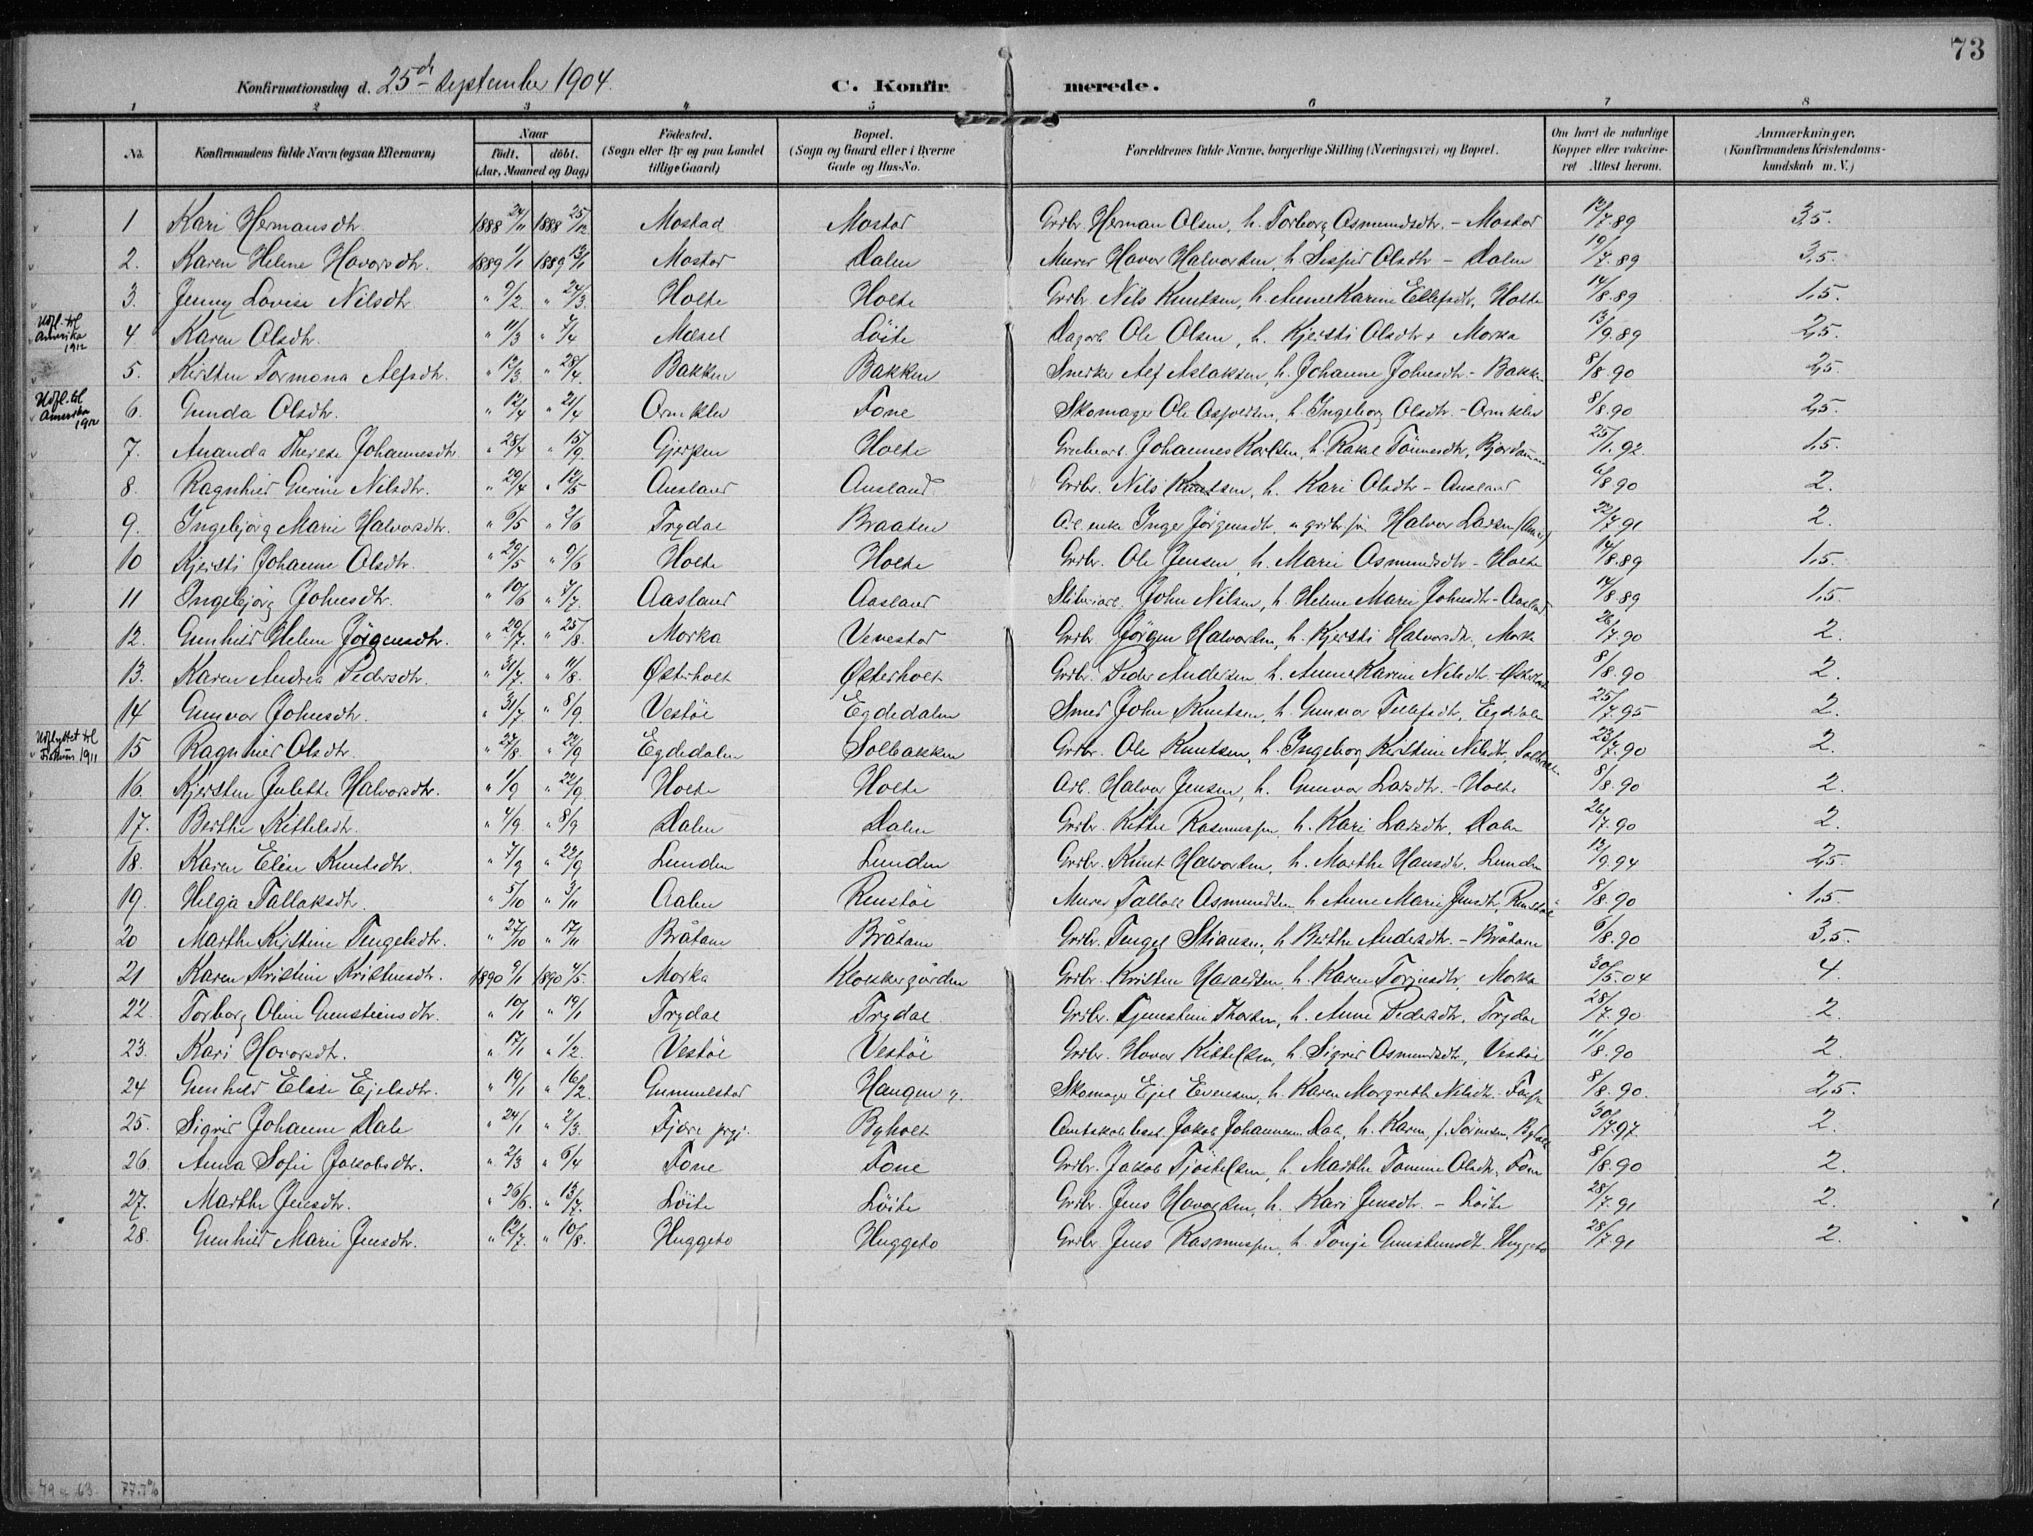 73
Konfirmationsdag d. 25de September 1904. C. Konfirmerede.
1 2 3 4 5 6 7 8
No. Konfirmandens fulde Navn (ogsaa Efternavn) Naar født. døbt. (Aar, Maaned og Dag) Fødested. (Sogn eller By og paa Landet tillige Gaard) Bopæl. (Sogn og Gaard eller i Byerne Gade og Hus-No. Forældrenes fulde Navne, borgerlige Stilling (Næringsvei) og Bopæl. Om havt de naturlige Kopper eller vakcineret Attest herom. Anmærkninger. (Konfirmandens Kristendomskundskab m. V.)
1 Kari Hermansdtr. 1888 24/11 1888 25/12 Mostad Mostad Grdbr. Herman Olsen, h. Torborg Osmundsdtr. - Mostad 12/7.89 3,5.
2. Karen Helene Hovorsdtr. 1889 1/1 1889 13/1 Mostad Dalen Murer Hovor Halvorsen, h. Olsdtr - Dalen 19/7.89 3,5.
3. Jenny Lovise Nilsdtr " 9/2 " 24/3 Holte Holte Grdbr. Nils Knutsen, h. Anne Karine Ellefsdtr, Holte 14/8.89 1,5.
Udfl. til Amerika 1912 4 Karen Olsdtr. " 11/3 " 7/4 Mæsel Löite Dagarb. Ole Olsen, h. Kjersti Olsdtr Morka 13/9.89 2,5
5. Kirsten Tormona Alfsdtr. " 12/3 " 28/4 Bakken Bakken Snedker Alf Aslaksen, h. Johanne Johnsdtr - Bakken 8/8.90 2,5.
Udfl. til Amerika 1912 6. Gunda Olsdtr. " 12/4 " 21/4 Ornkler Tone Skomager Ole h. Ingeborg Olsdtr. - Ornkler 8/8.90 2,5
7. Ananda Therese Johannesdtr " 28/4 " 15/9 Gjerpen Holte Grubearb. Johannes Karlsen, h. Rakel Tönnesdtr, 25/1.92 1,5.
8. Ragnhild Gurine Nilsdtr. " 20/4 " 12/5 Ausland Ausland Grdbr. Nils Knutsen, h. Kari Olsdtr - Ausland 6/8.90 2.
9. Ingebjörg Marie Halvorsdtr. " 6/5 " 2/6 Trydal Braaten enke Inger Jörgensdtr. Halvor Larsen 22/7.91 2.
10 Kjersti Johanne Olsdtr. " 29/5 " 9/6 Holte Holte Grdbr. Ole Jensen, h. Marie Osmundsdtr - Holte 14/8.89 1,5.
11 Ingebjörg Johnsdtr. " 10/6 " 7/7. Aasland Aasland John Nilsen, h. Helene Marie Johnsdtr - Aasland 14/8.89 1,5.
12. Gunhild Helene Jörgensdtr. " 29/7. " 25/8. Morka Venestad Grdbr. Jörgen Halvorsen, h. Kjersti Halvorsdtr, Morka 26/7.90 2.
13. Karen Andrea Pedersdtr. " 31/7. " 11/8. Østerholt Østerholt Grdbr. Peder Andersen, h. Anne Karine Nilsdtr - Østerholt 8/8.90 2.
14 Gunvor Johnsdtr. " 31/7 " 8/9. Vestöl Egdedalen Smed John Knutsen, h. Gunvor Tellefsdtr, Egdedalen 25/7.95 2.
Udflyttet til 1911 15 Ragnhild Olsdtr. " 27/8. " 22/9 Egdedalen Solbakken Grdbr. Ole Knutsen, h. Ingeborg Kirstine Nilsdtr, Solbakken 23/7.90 2.
16 Kjersten Julette Halvorsdtr. " 1/9 " 22/9. Holte Holte Arb. Halvor Jensen, h. Gunvor Larsdtr. - Holte 8/8.90 2.
17. Berthe Kittelsdtr. " 4/9. " 8/9 Dalen Dalen Grdbr. Kittel Rasmussen h. Kari Larsdtr, Dalen 26/7.90 2.
18. Karen Elise Knutsdtr. " 7/9 " 22/9 Lunden Lunden Grdbr. Knut Halvorsen, h. Marthe Hansdtr. Lunden 12/9.94 2,5
19. Helga Tallaksdtr. " 5/10 " 3/11 Aalen Renstöl Murer Tallak Osmundsen h. Anne Marie Jensdtr, Renstöl 8/8.90 1,5.
20 Marthe Kirstine Tengelsdtr. " 27/10 " 17/11 Bråtane Bråtane Grdbr. Tengel Stiansen, h. Berthe Andersdtr. - Bråtane 6/8.90 3,5.
21 Karen Kristine Kristensdtr. 1890 9/1 1890 4/5. Morka Klokkergården Grdbr. Kristen h. Karen Torjusdtr, Morka 30/5.04 4.
22 Torborg Oline Gunsteinsdtr. " 10/1 " 19/1 Trydal Trydal Grdbr. Thorsen, h. Anne Pedersdtr, Trydal 28/7.90 2.
23. Kari Hovorsdtr. " 17/1 " 1/2. Vestöl Vestöl Grdbr. Hovor Kittelsen, h. Sigrid Osmundsdtr, Vestöl 11/8.90 2.
24 Gunhild Elise Ejelsdtr. " 19/1 " 16/2. Gummelstad Haugen ". Skomager Ejel Evensen, h. Karen Margrethe Nilsdtr. 8/8.90. 2,5.
25. Sigrid Johanne Dale " 24/1 " 2/3. Fjære prgj. Byholt Amtskolebest. Jakob Johannesen Dale, h. Karen, f. Sörensen, Byholt 30/7.97. 2.
26. Anna Sofie Jakobsdtr. " 2/3 " 6/4 Tone Tone Grdbr. Jakob Tjöstelsen, h. Marthe Tomine Olsdtr. Tone 8/8.90 2.
27. Marthe Jensdtr. " 26/6. " 13/7. Löite Löite Grdbr. Jens Hovorsen, h. Kari Jensdtr. - Löite 28/7.91 2.
28. Gunhild Marie Jensdtr. " 12/7. " 10/8. Huggeto Huggeto Grdbr. Jens Rasmussen, h. Tonje Gunsteinsdtr. Huggeto 28/7.91 2.